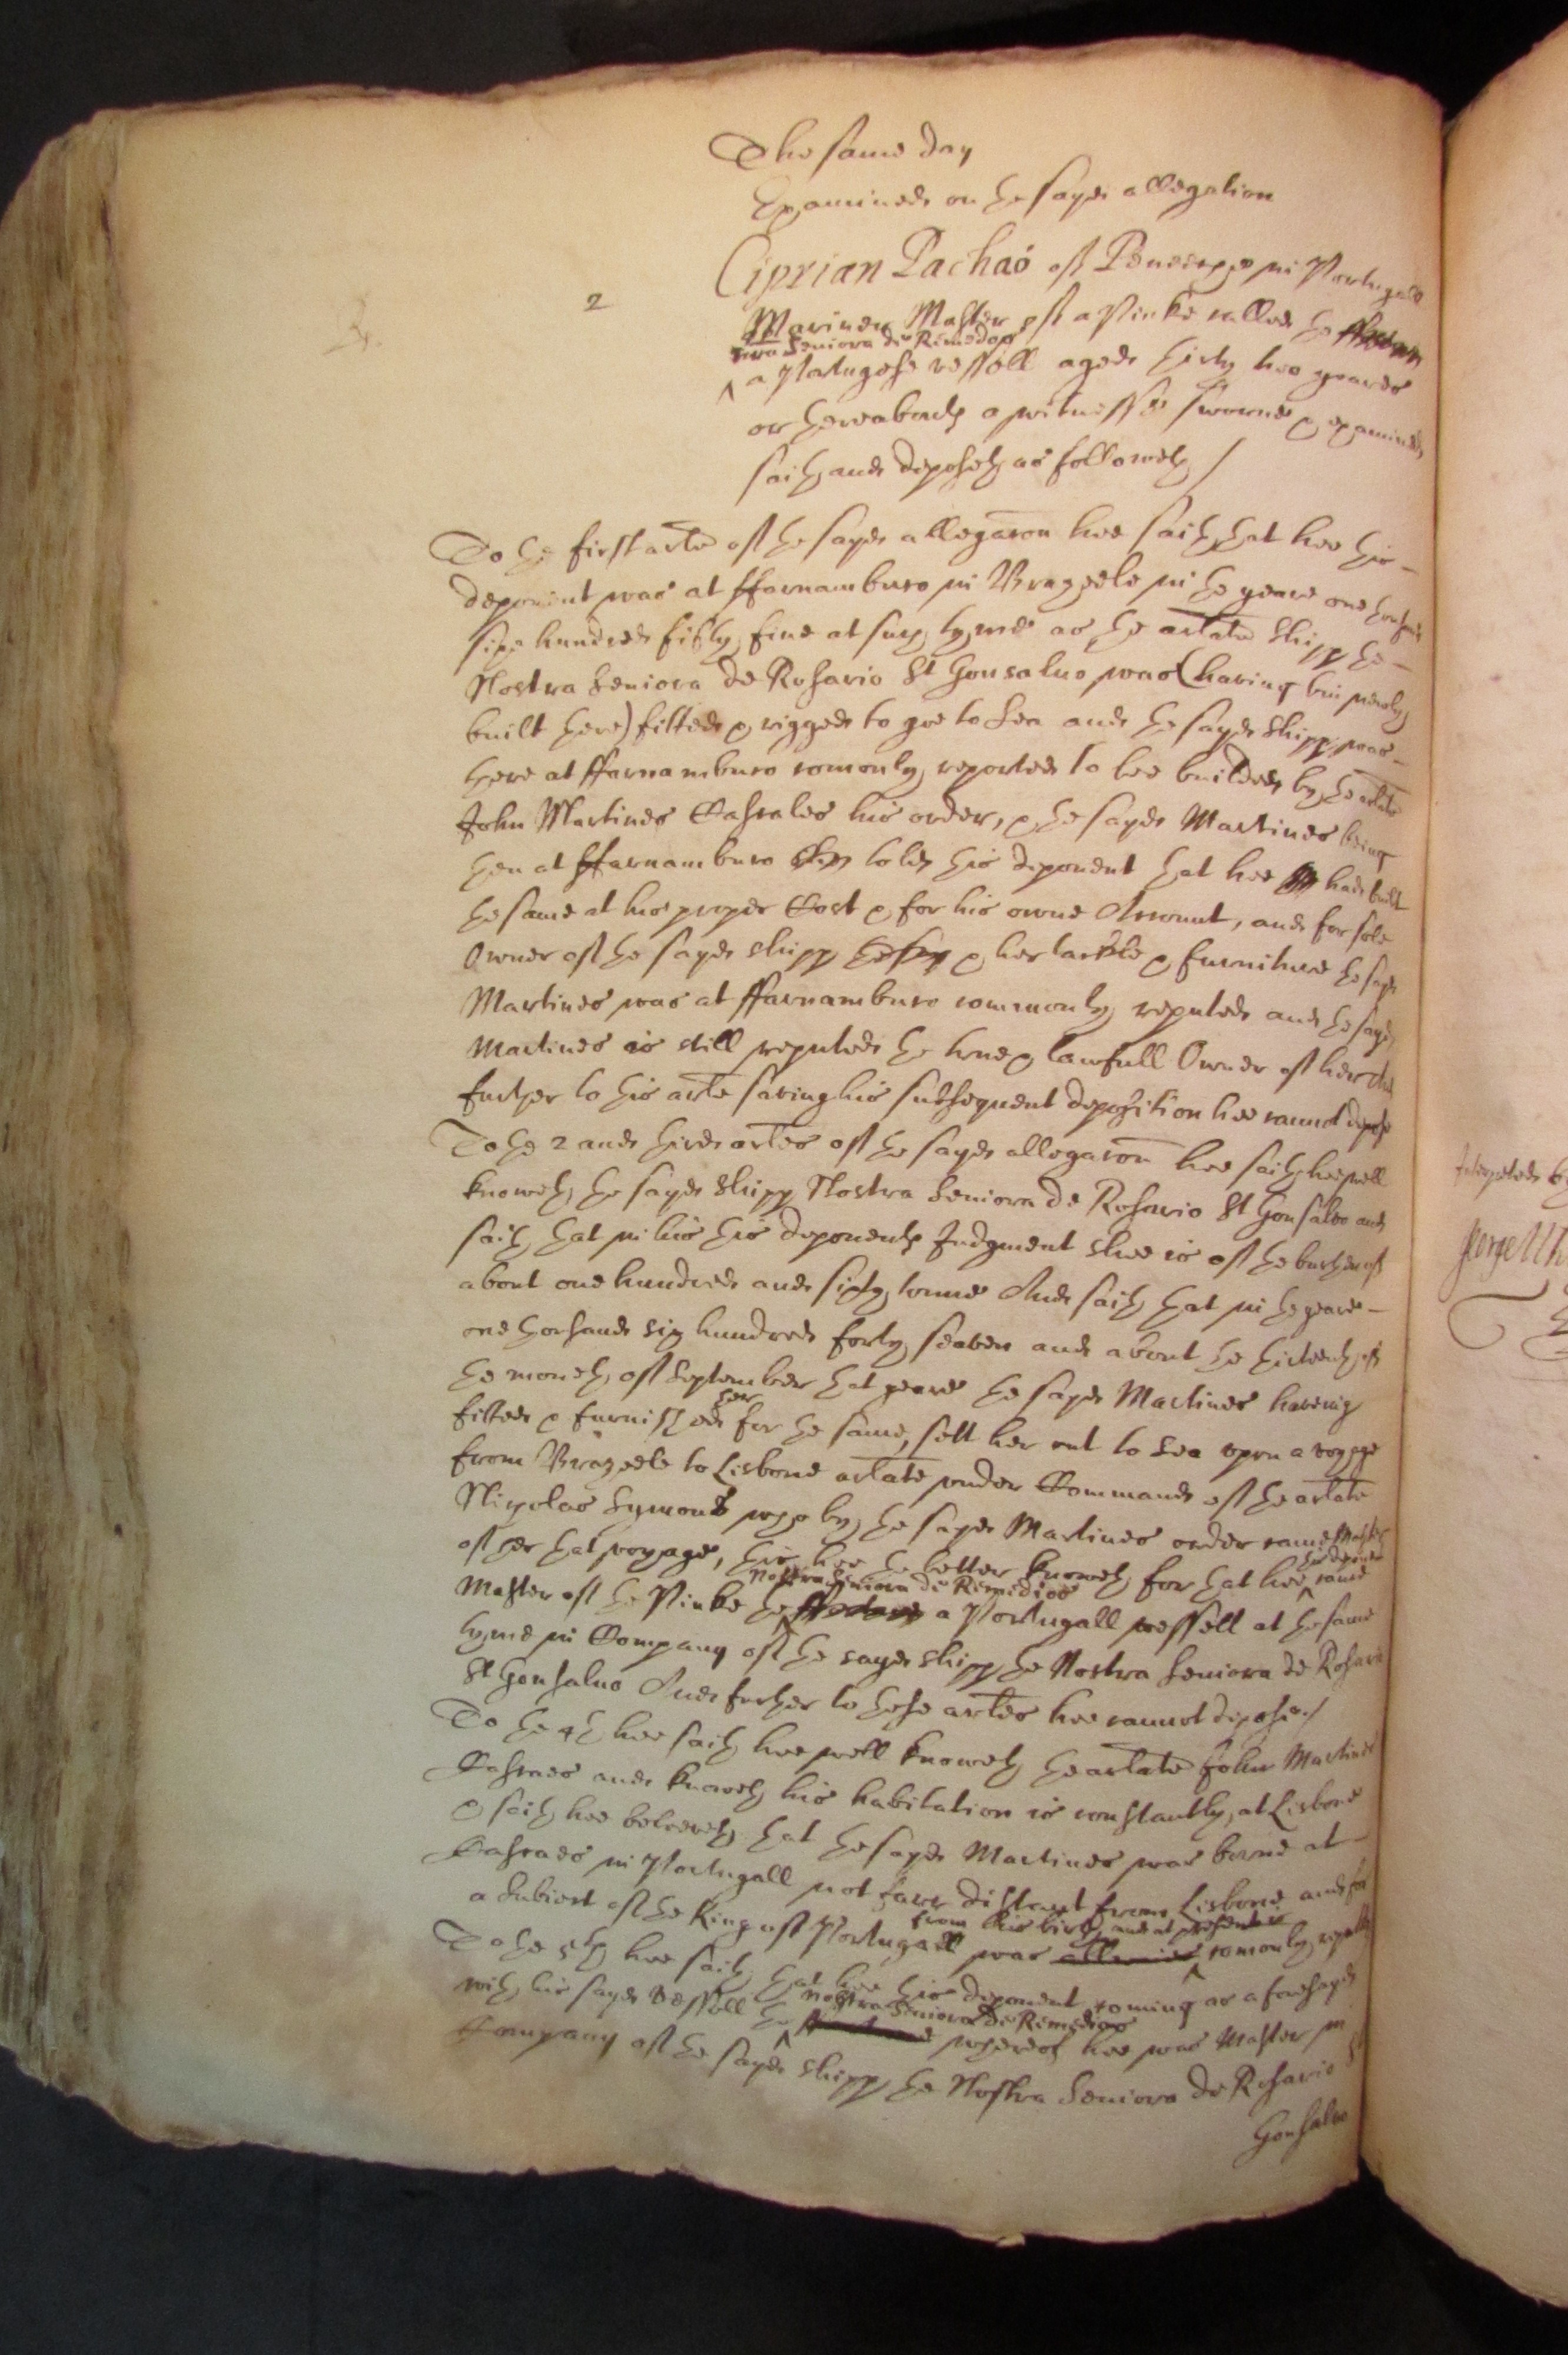 The same day
Examined on the sayd allegation
2
Ciprian Pachao of in Portugall
Mariner Master of a Pinke called the
nra Seniora de Remedios
a Portugese vessell aged thirty two yeares
or thereabouts a witnesse sworne & examined
saith and deposeth as followeth /
To the first arle of the sayd allegacon hee saith that hee this
deponent was at ffarnambuco in Brazeele in the yeare one thousand
sixe hundred fifty five at such tyme as the arlate shipp the
Nostra Seniora de Rosario St Gonsalvo was (having bin newly
built there) fitted & rigged to goe to Sea and the sayd shipp was
there at ffarnambuco comonly reported to bee builded by the arlate
John Martines Cascales his order, & the sayd Martines being
then at ffarnambuco told this deponent that hee had built
the same at his proper Cost & for his owne Account, and for sole
Owner of the sayd shipp & her tackle & furniture the sayd
Martines was at ffarnambuco commonly reputed and the sayd
Martines is still reputed the true & lawfull Owner of her And
further to this arle saving his subsequent deposition hee cannot depose
To the 2 and third arles of the sayd allegacon hee saith hee well
knoweth the sayd shipp Nostra Seniora de Rosario St Gonsalvo and
saith that in his this deponents Judgment shee is of the burthen of
about one hundred and sixty tonnes And saith that in the yeare
one thousand six hundred forty seaven and about the thirteenth of
the moneth of September that yeare the sayd Martines haveing
fitted & furnished her for the same, sett her out to Sea upon a voyage
from Brazeele to Lisbone arlate under Command of the arlate
Nicholas Symons who by the sayd Martines order came Master
of her that voyage, this hee the better knoweth for that hee this deponent came
Master of the Pinke the Nostra Seniora de Remedios a Portugall vessell at the same
tyme in Company of the sayd shipp the Nostra Seniora de Rosario
St Gonsalvo And further to these arles hee cannot depose /
To the 4th hee saith hee well knoweth the arlate John Martines
Cascaes and knoweth his habitation is constantly at Lisbone
& saith hee beleeveth that the sayd Martines was borne at
Cascaes in Portugall not farr distant from Lisbone and for
a Subiect of the King of Portugall was from his birth and at present is comonly reputed
To the 5th hee saith that hee this deponent coming as aforesayd
with his sayd Vessell the Nostra Seniora de Remedios whereof hee was Master in
Company of the sayd shipp the Nostra Seniora de Rosario St
Gonsalvo
Interpreted by
George